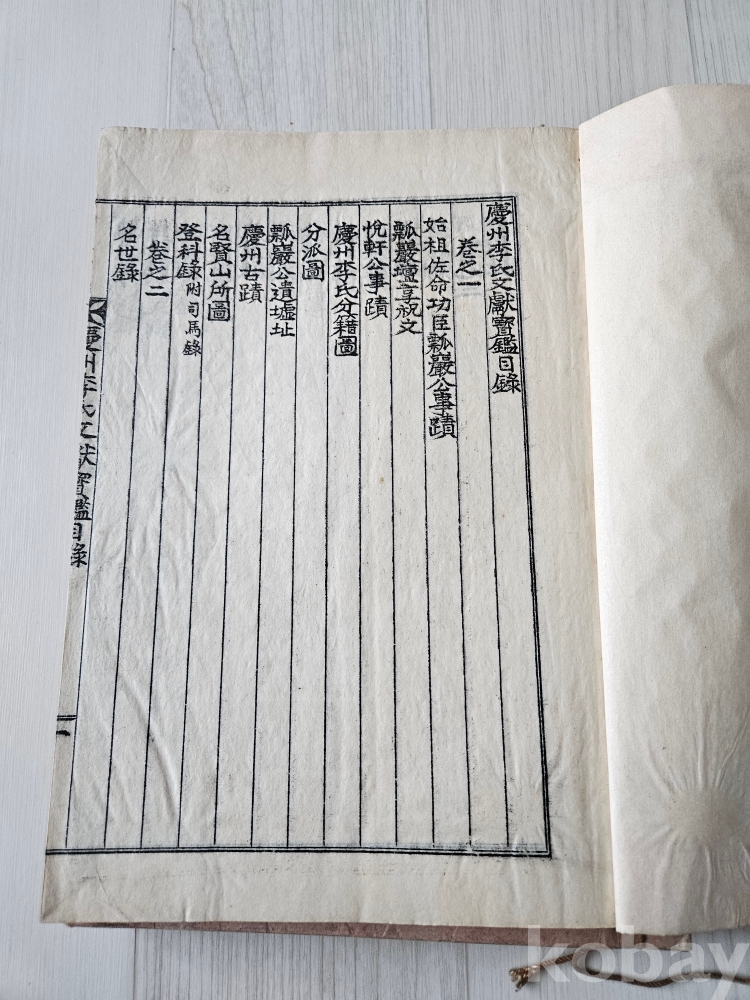 慶州李氏文獻寶鑑目錄
卷之一
始祖佐命功臣瓢巖公事蹟
瓢巖壇享祝文
悅軒公事蹟
慶州李氏分籍圖
分派圖
瓢巖公遺墟址
慶州古蹟
名賢山所圖
登科錄附司馬錄
卷之二
名世錄
慶州李氏文獻寶鑑目錄
一
kobay